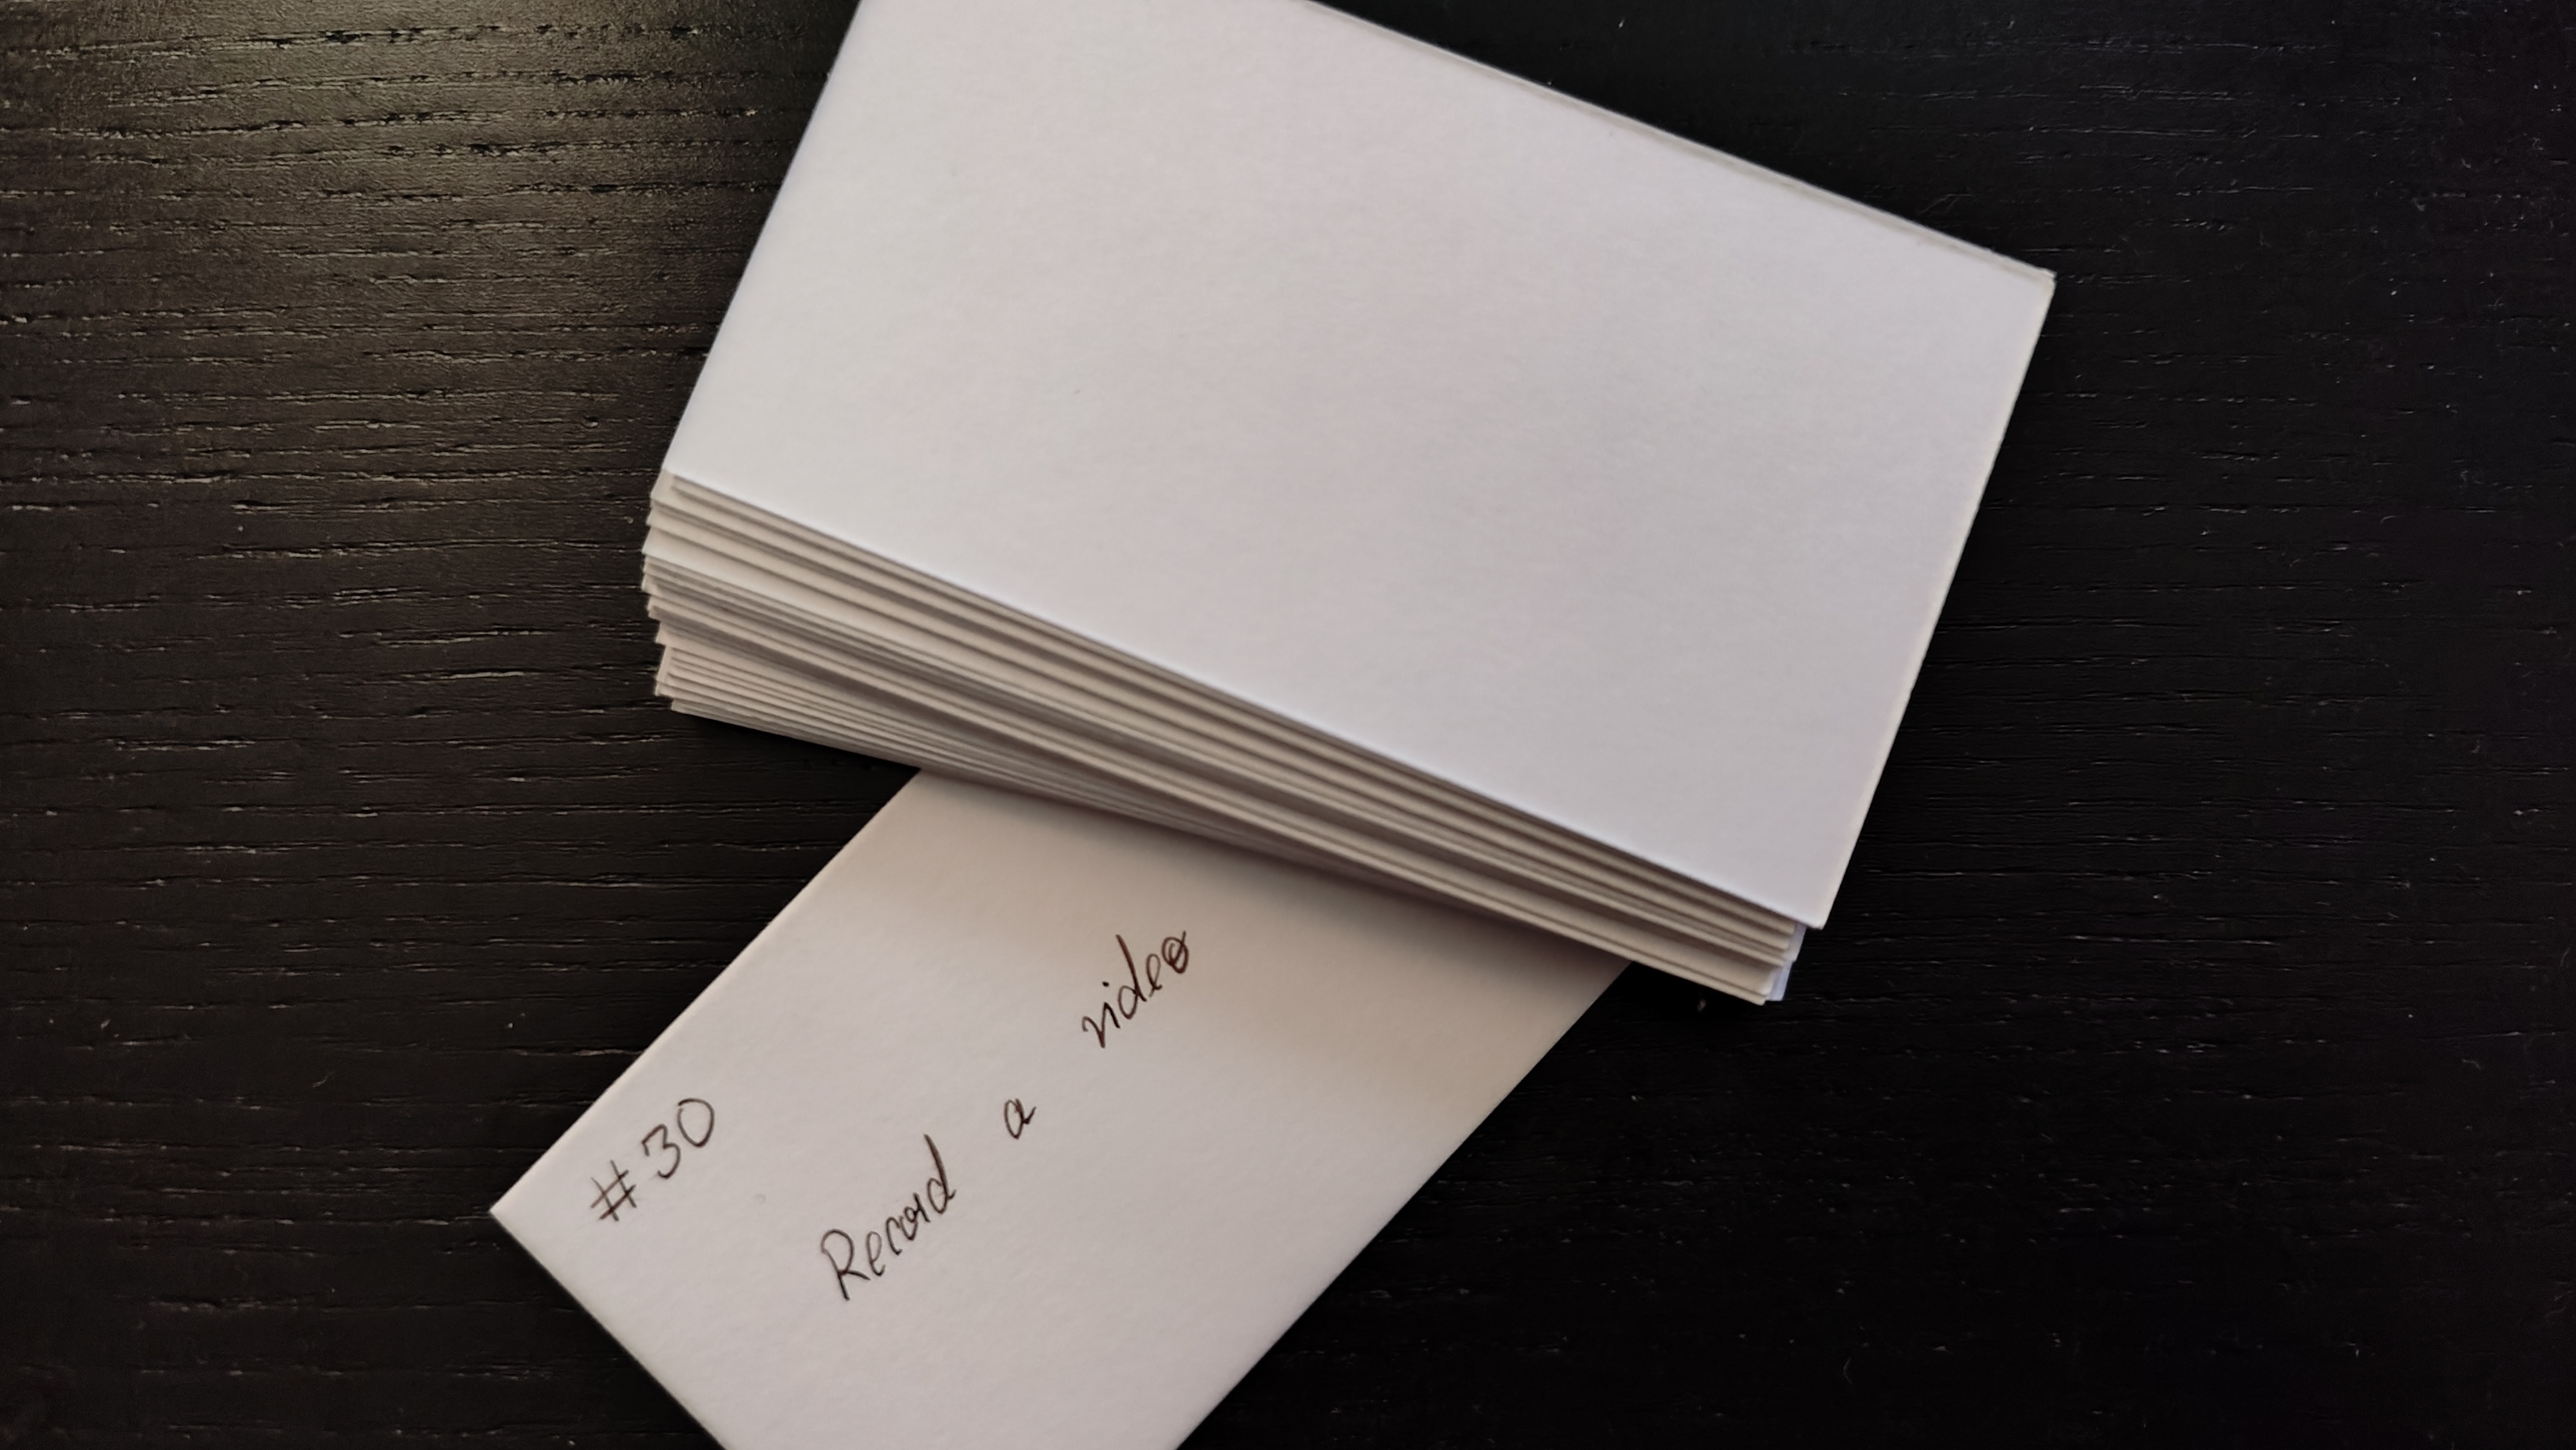 #30
Record a video